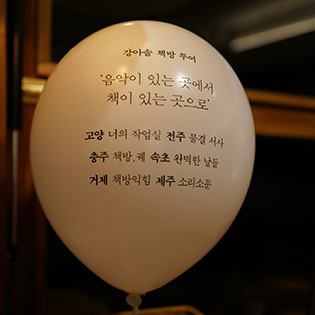 강아솔 책방 투어
'음악이 있는 곳에서
책이 있는 곳으로'
고양 너의 작업실 전주 물결 서사
충주 책방, 궤 속초 완벽한 날들
거제 책방익힘 제주 소리소문